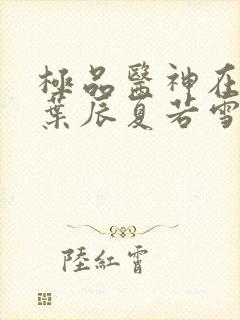 極品醫神在
葉辰夏若雪
陸紅霄